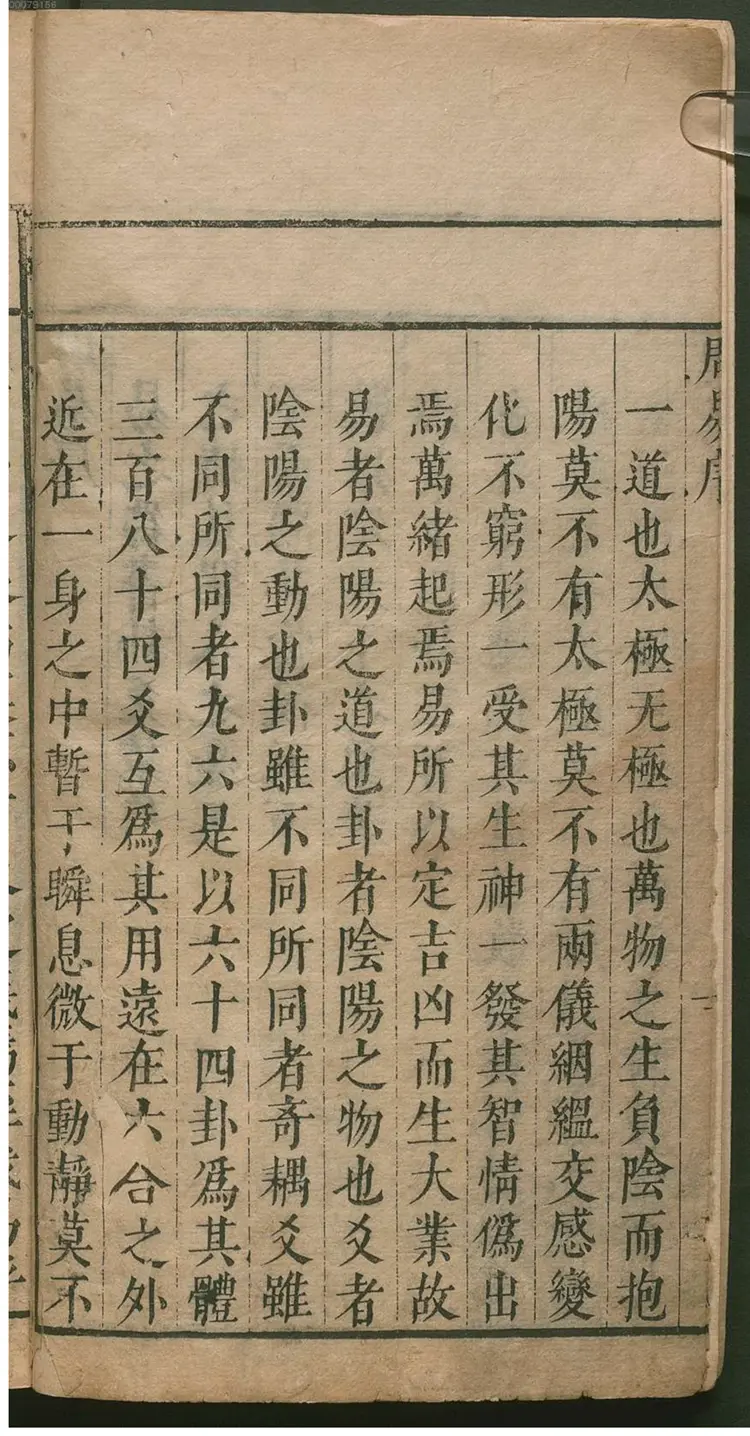 00079156
周易序
一道也太極无極也萬物之生負陰而抱
陽莫不有太極莫不有兩儀絪縕交感變
化不窮形一受其生神一發其智情僞出
焉萬緒起焉易所以定吉凶而生大業故
易者陰陽之道也卦者陰陽之物也爻者
陰陽之動也卦雖不同所同者奇耦爻雖
不同所同者九六是以六十四卦爲其體
三百八十四爻互爲其用遠在六合之外
近在一身之中暫于瞬息微于動靜莫不